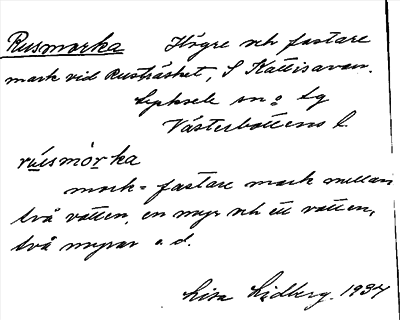 Rusmorka Högre och fastare
mark vid Rusträsket, S Kattisavan.
Lycksele sn o Lg
Västerbottens l.
rúsmòrka
mork = fastare mark mellan
två vatten, en myr och ett vatten,
två myrar o.d.
Lisa Lidberg. 1937